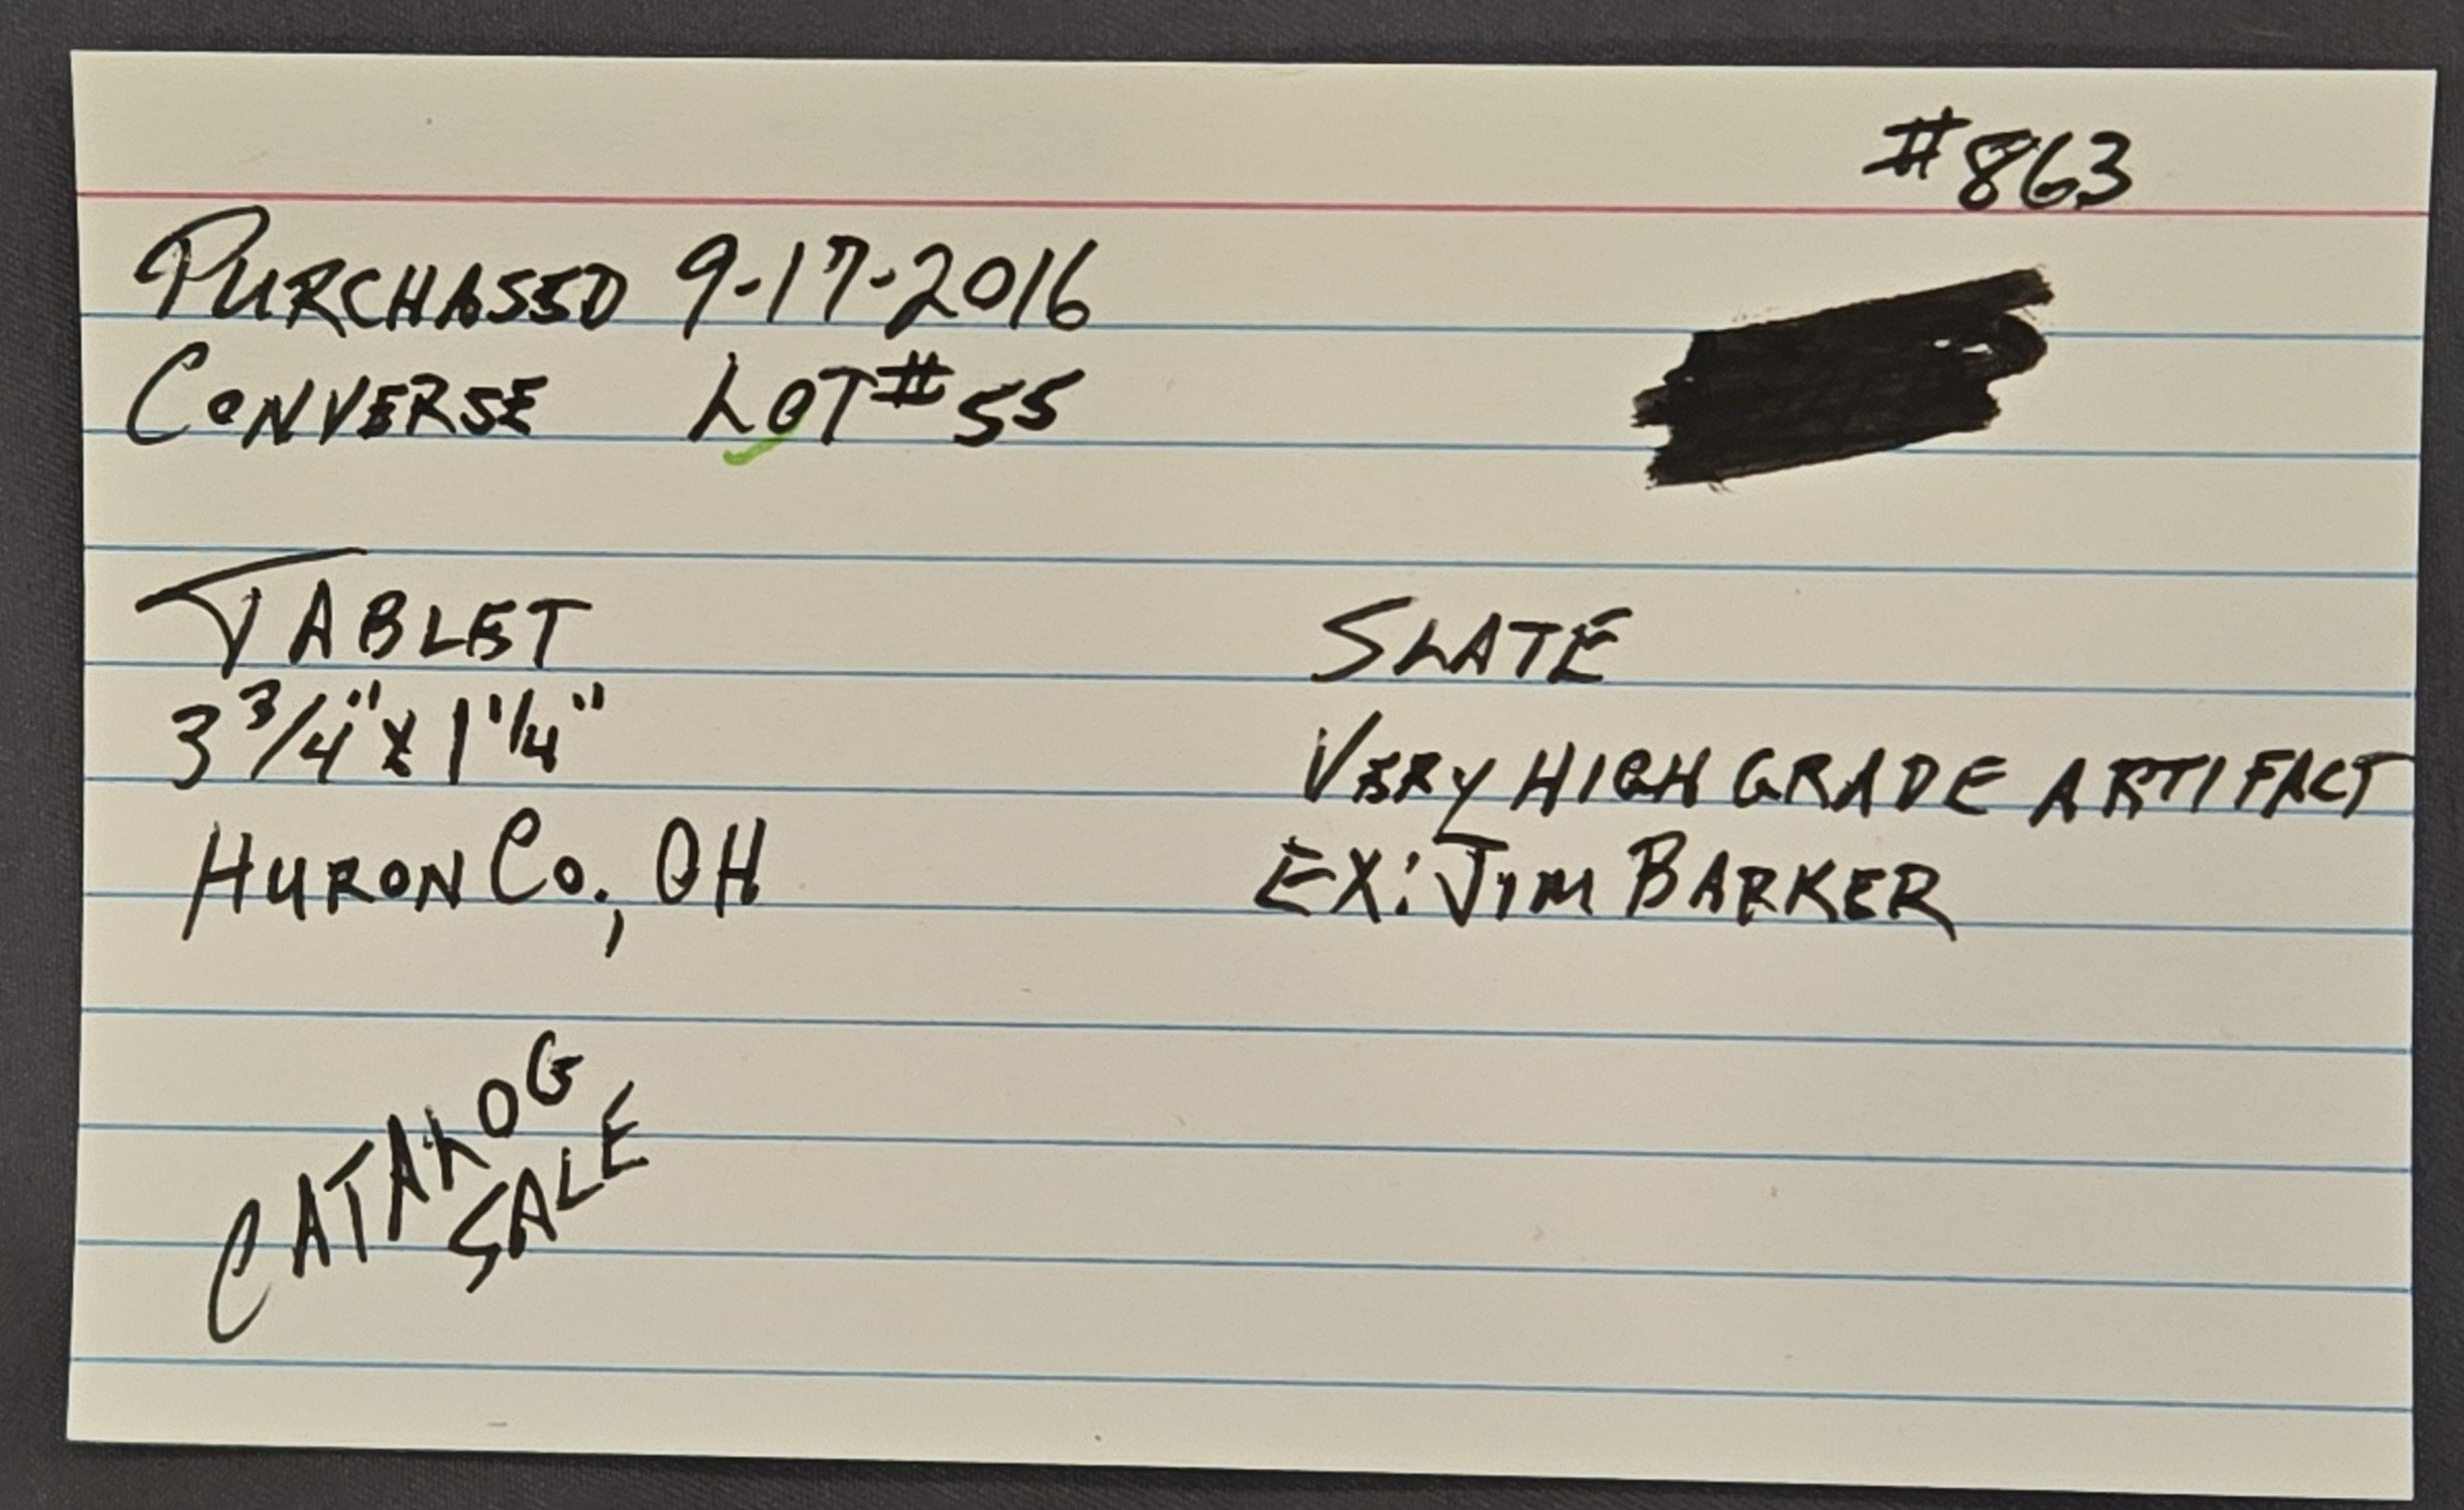 #863
PURCHASED 9-17-2016
CONVERSE LOT #55
TABLET
3 3/4" X 1 1/4"
HURON CO., OH
SLATE
VERY HIGH GRADE ARTIFACT
EX: JIM BARKER
CATALOG
SALE